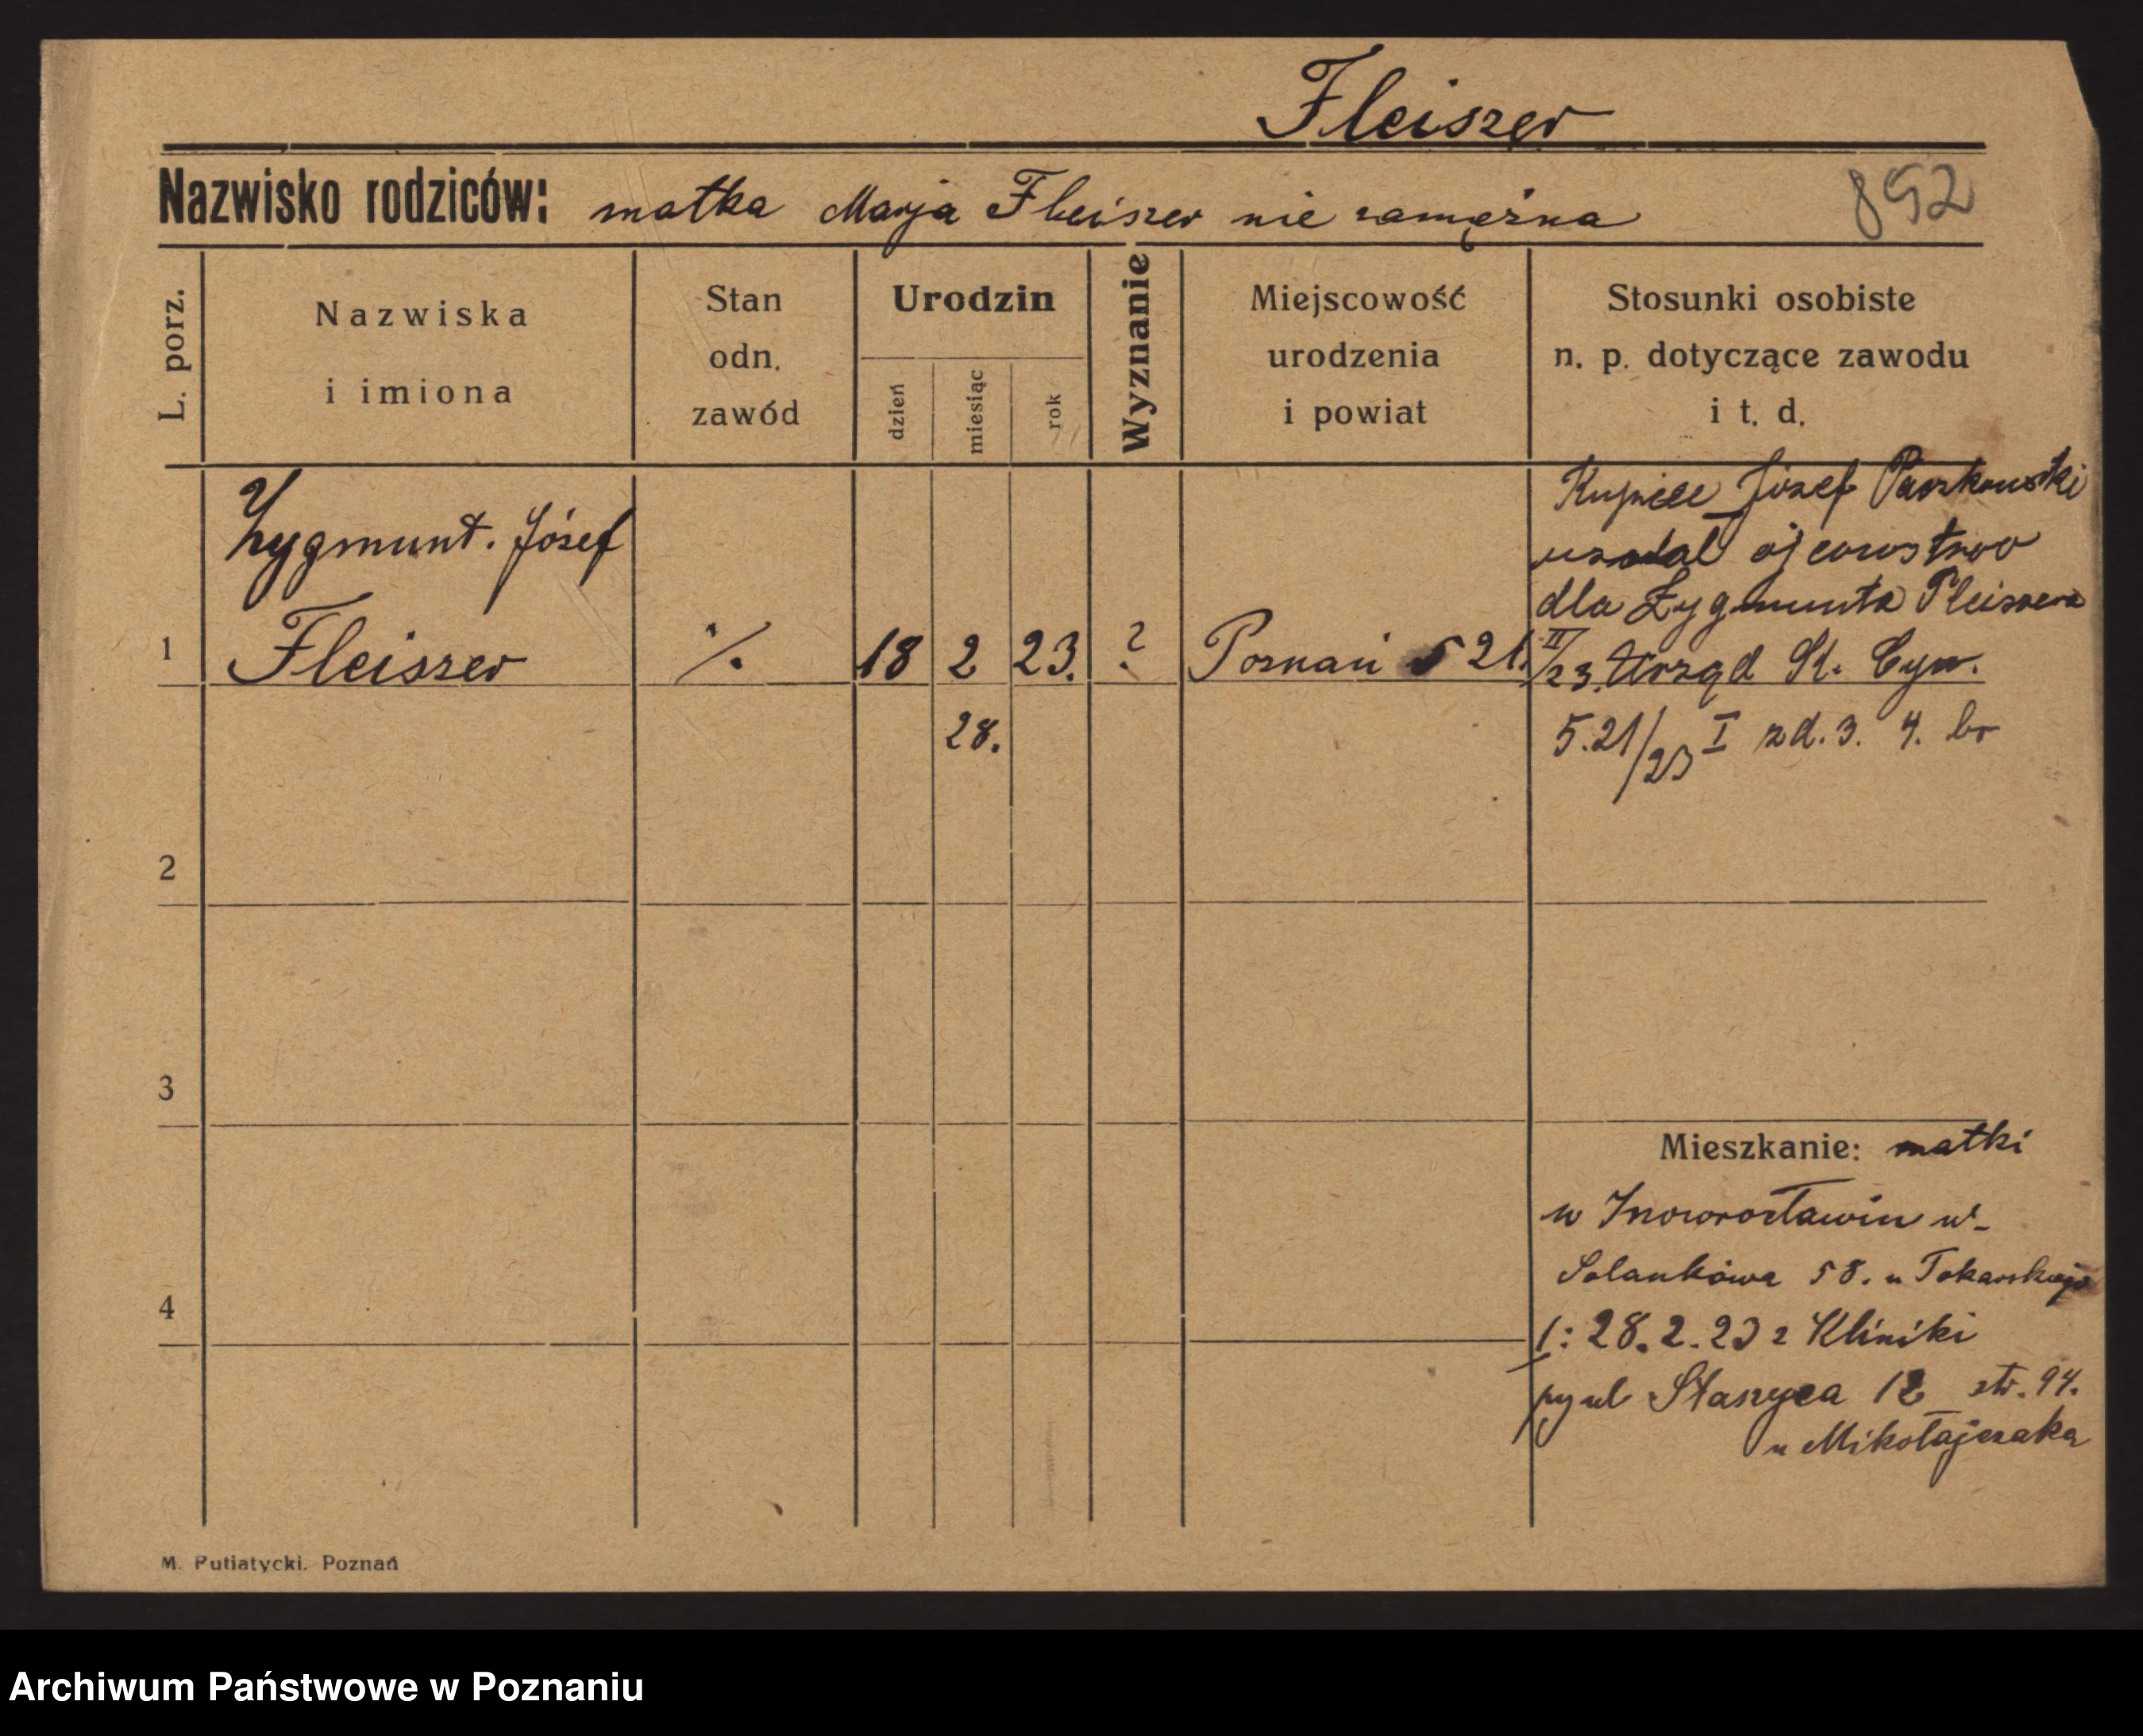 Fleiszer
Nazwisko rodziców: matka Marja Fleiszer nie zamężna
852
L. porz.
Nazwiska
i imiona
Stan
odn.
zawód
Urodzin
dzień
miesiąc
rok
Wyznanie
Miejscowość
urodzenia
i powiat
Stosunki osobiste
n. p. dotyczące zawodu
i t. d.
Kupiec Józef Paszkowski
uznał ojcowstwo
dla Zygmunta Fleiszera
Zygmunt. Józef
1 Fleiszer ./. 18 2 23. ? Poznań 5 21. II/23. Urząd St. Cyw.
28.
5.21/23 I zd. 3. 4. br
2
3
4
Mieszkanie: matki
w Inowrocławiu w-
Solankowa 58. u Tokarskiego
1: 28.2.23 z Kliniki
ul Staszyca 12 str. 94.
u Mikołajczaka
M. Putiatycki. Poznań
Archiwum Państwowe w Poznaniu